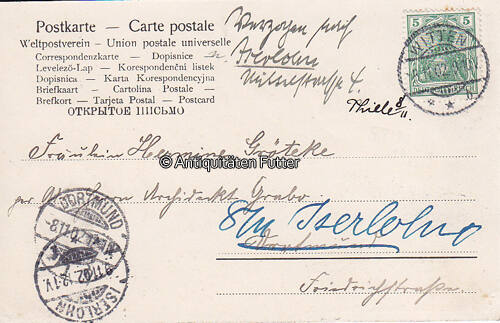 Postkarte – Carte postale
Weltpostverein – Union postale universelle
Correspondenzkarte – Dopisnice
Levelező-Lap – Korespondenční listek
Dopisnica – Karta Korespondencyjna
Briefkaart – Cartolina Postale –
Brefkort – Tarjeta Postal – Postcard
ОТКРЫТОЕ ПИСЬМО
Verzogen nach
Iserlohn
5 5
WITTEN
11.02
Thiele 8/11.
Fräulein Hermine Gröteke
© Antiquitäten Futter
Architekt Grabo.
Iserlohn
Dortmund
Friedrichstraße.
DORTMUND
ISERLOHN
11.02.12-1V